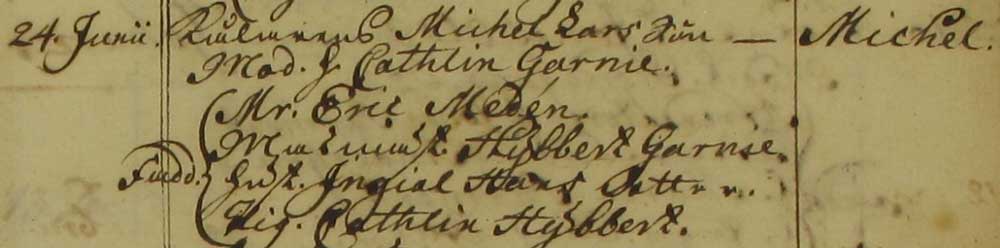 24. Junii. Kålarens Michel Lars Sön — Michel.
Mod. H. Cathlin Garnie.
Mr. Eric Medén.
Hybbert Garnie.
Fadd. Hust. Ingial Hans Dotter.
Pig. Cathlin Hybbert.